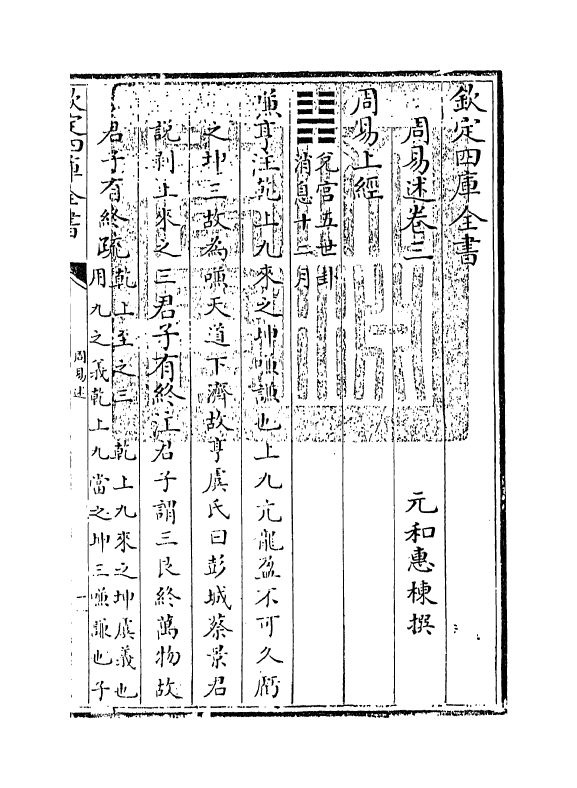 欽定四庫全書
周易述卷三
元和惠棟撰
周易上經
兌宮五世卦
消息十二月
嗛亨注乾上九來之坤嗛謙也上九亢龍盈不可久虧
之坤三故為嗛天道下濟故亨虞氏曰彭城蔡景君
說剥上來之三君子有終注君子謂三艮終萬物故
君子有終疏
乾上至之三　乾上九來之坤虞義也
用九之義乾上九當之坤三嗛謙也子
欽定四庫全書
周易述
一